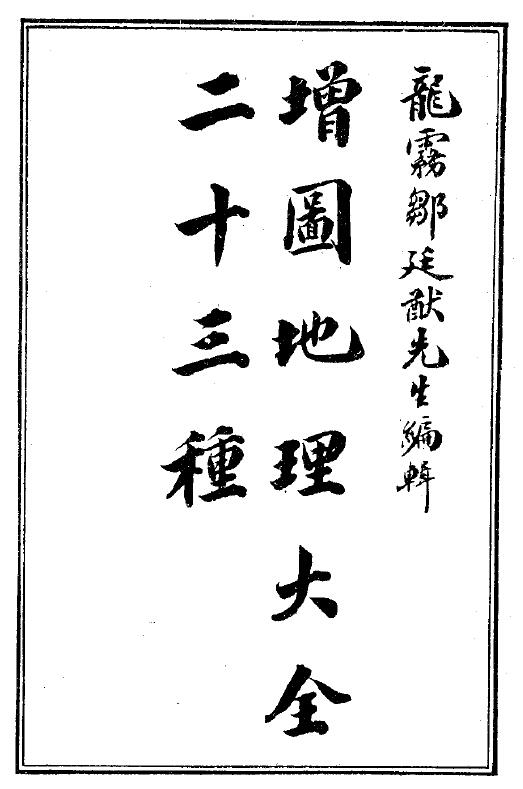 龍霧鄒廷猷先生編輯
增圖地理大全
二十三種